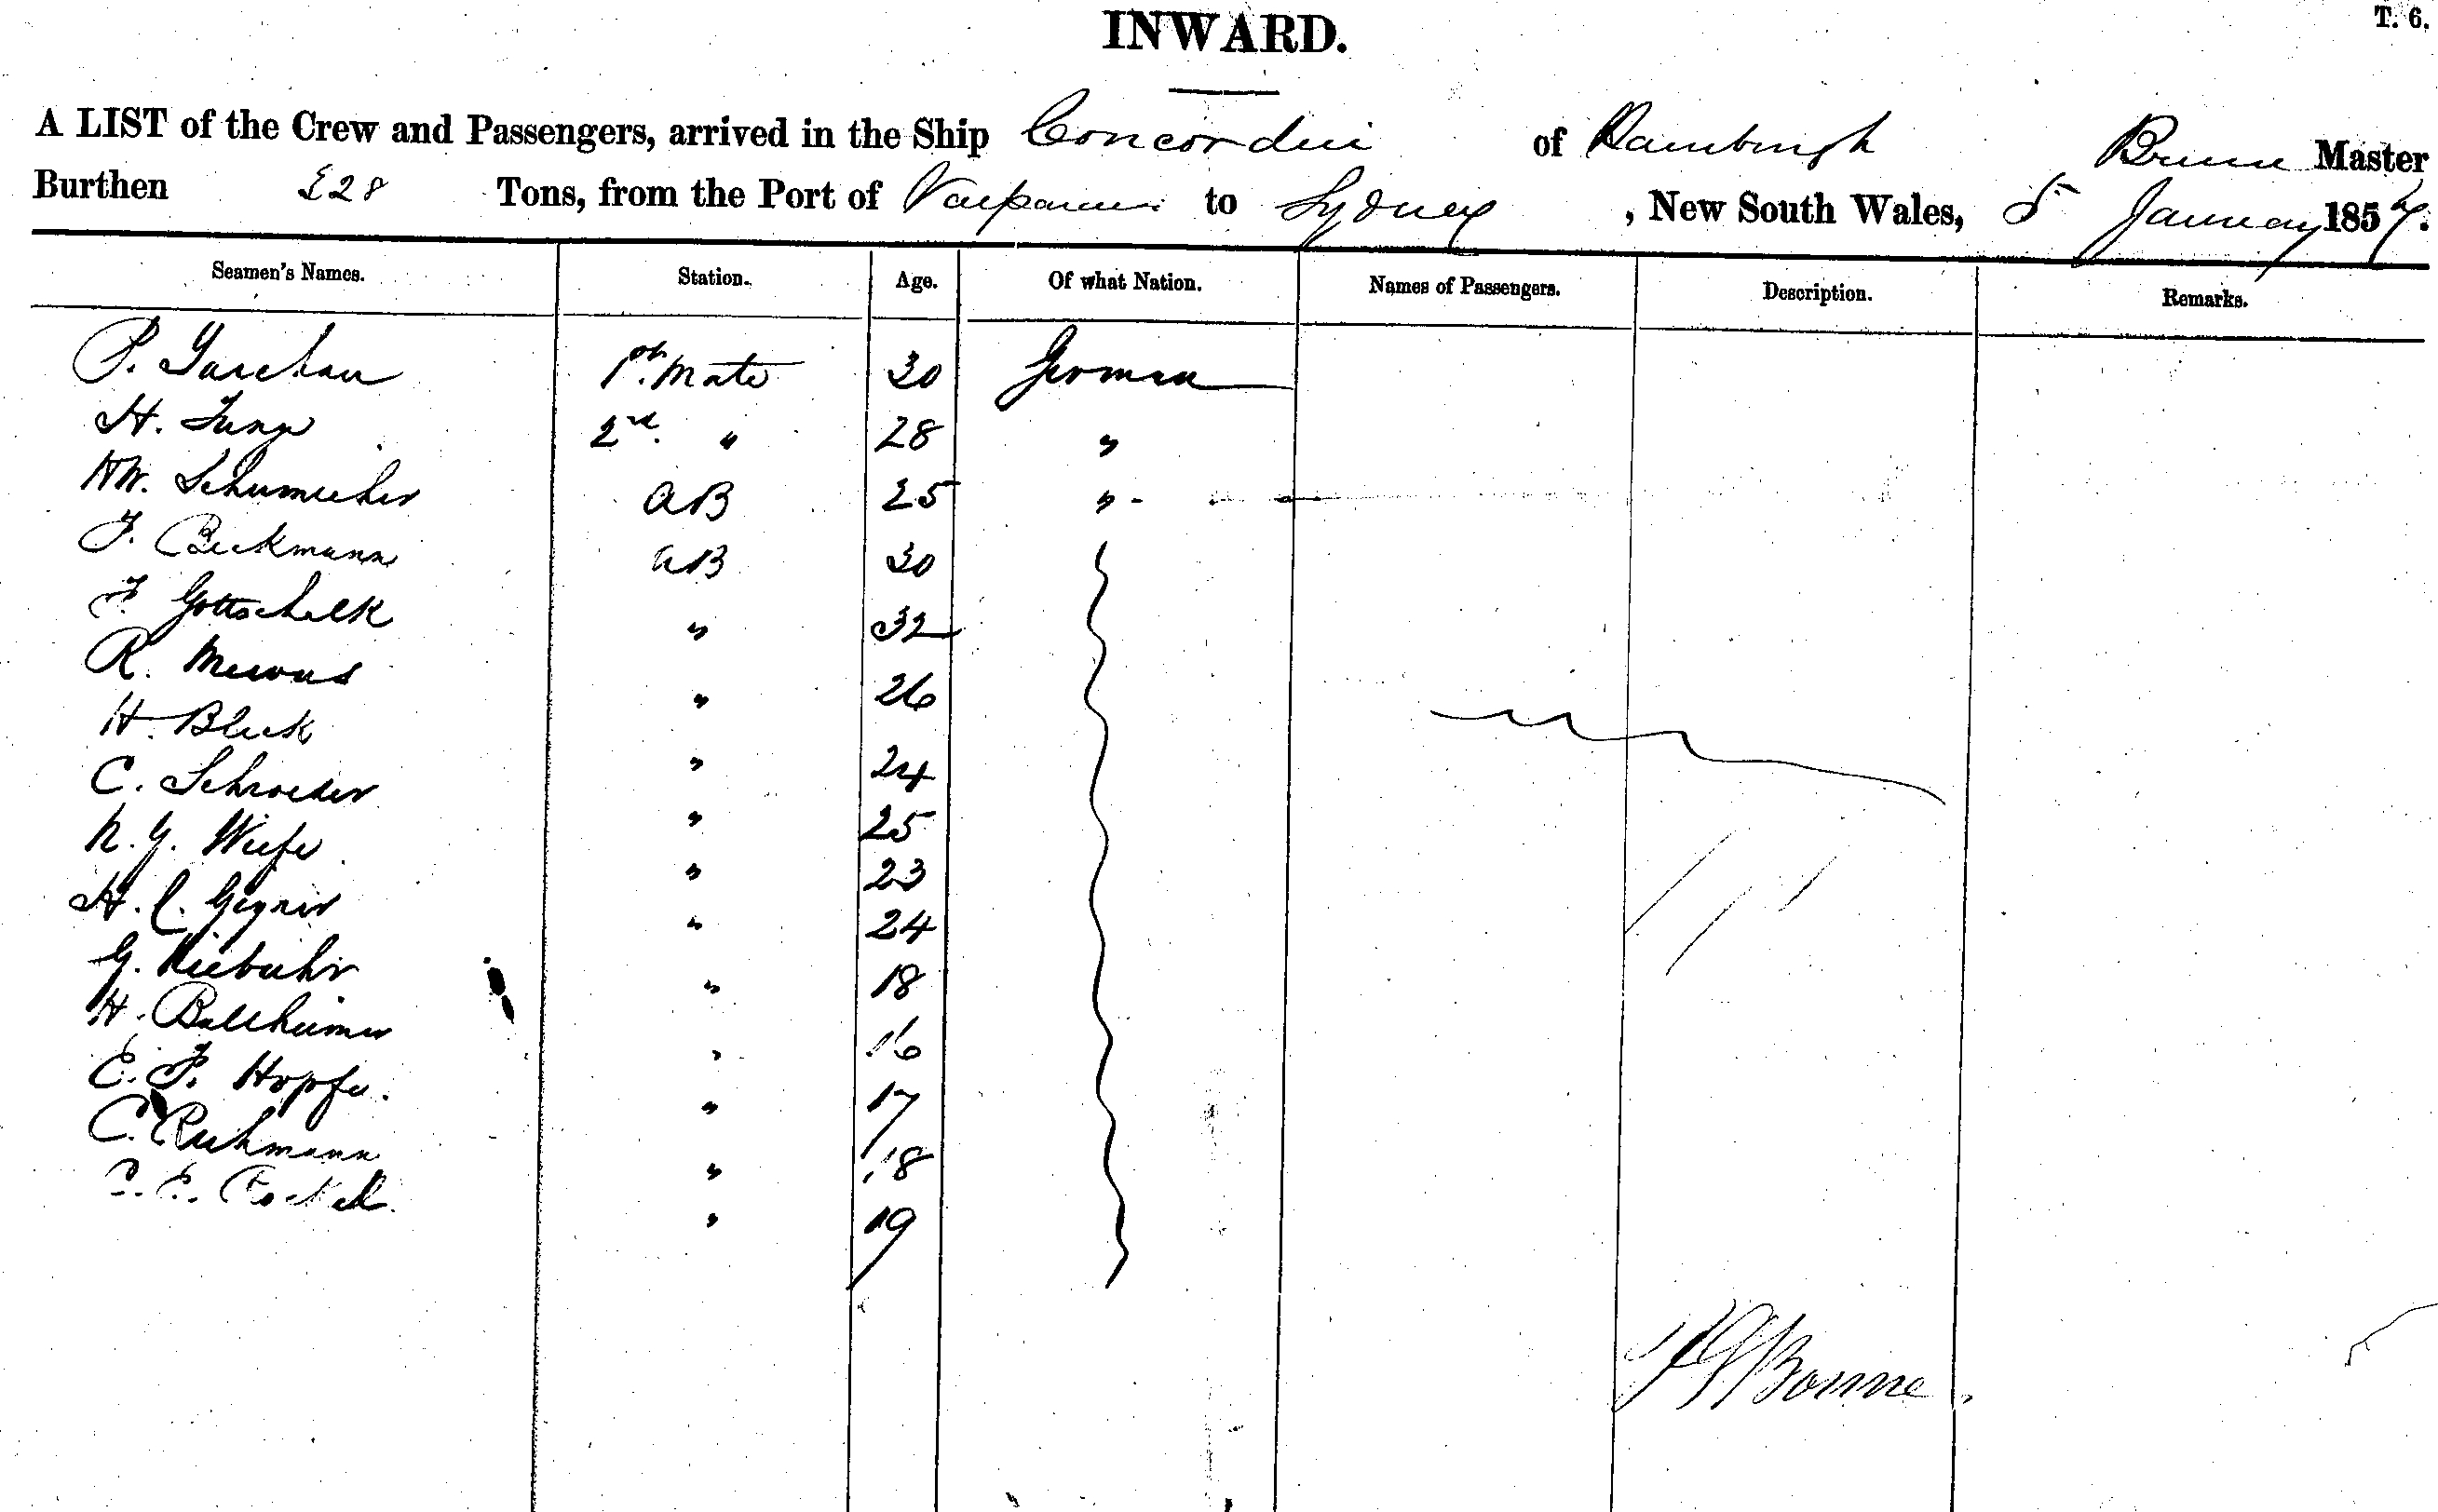 INWARD.
T. 6.
A LIST of the Crew and Passengers, arrived in the Ship Concordia of Hamburgh Master
Burthen 228 Tons, from the Port of to Sydney , New South Wales, 5 January 1857.
Seamen's Names. Station. Age. Of what Nation. Names of Passengers. Description. Remarks.
P. 1st. Mate 30 German
H. 2nd. " 28 "
HW. Schumacher AB 25 " -
F. Beckmann AB 30
F Gottschalk " 32
R. Mewus " 26
H. Bleck " 24
C. Schroeder " 25
N. J. Wiefe " 23
H. C. " 24
G. Niebuhr " 18
H. Ballheimer " 16
E. F. Hopfe. " 17
C. " 18
C. E. " 19